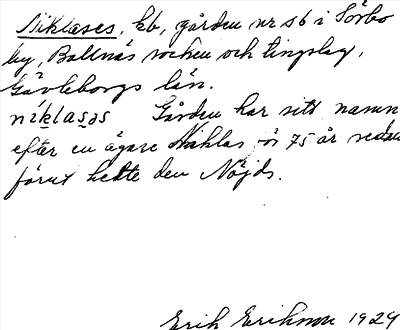 Niklases, kb, gården nr 56 i Sörbo
by, Bollnäs socken och tingslag,
Gävleborgs län.
niklasəs Gården har sitt namn
efter en ägare Niklas för 75 år sedan
förut hette den Nöjds.
Erik Erikson 1929